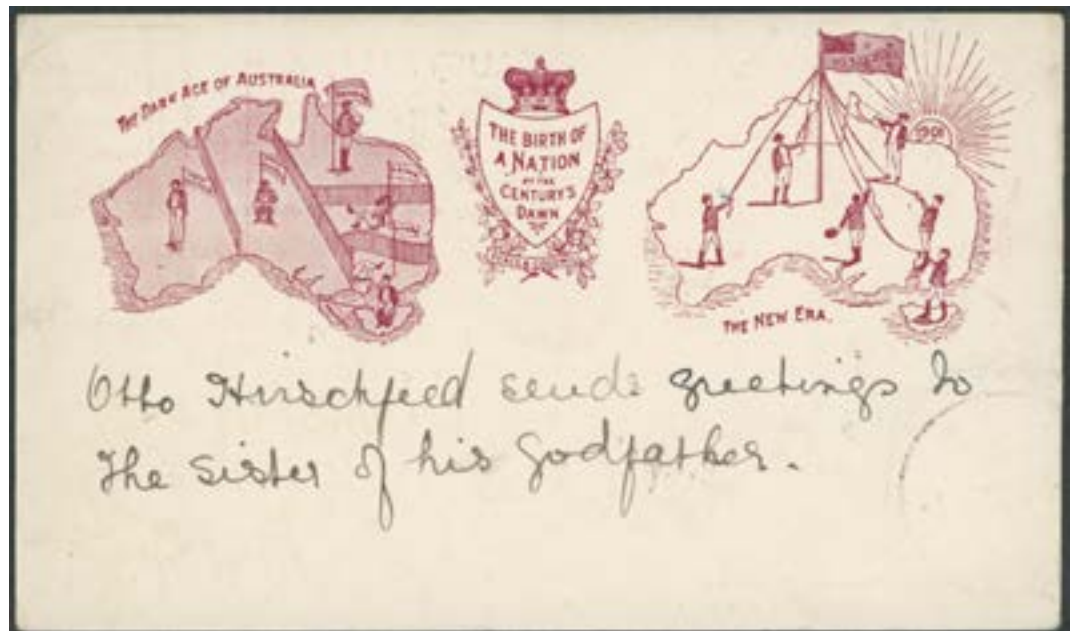 THE DARK AGE OF AUSTRALIA
THE BIRTH OF
A NATION
AT THE
CENTURY'S
DAWN
1901
THE NEW ERA.
Otto Hirschfeld sends greetings to
the sister of his Godfather.